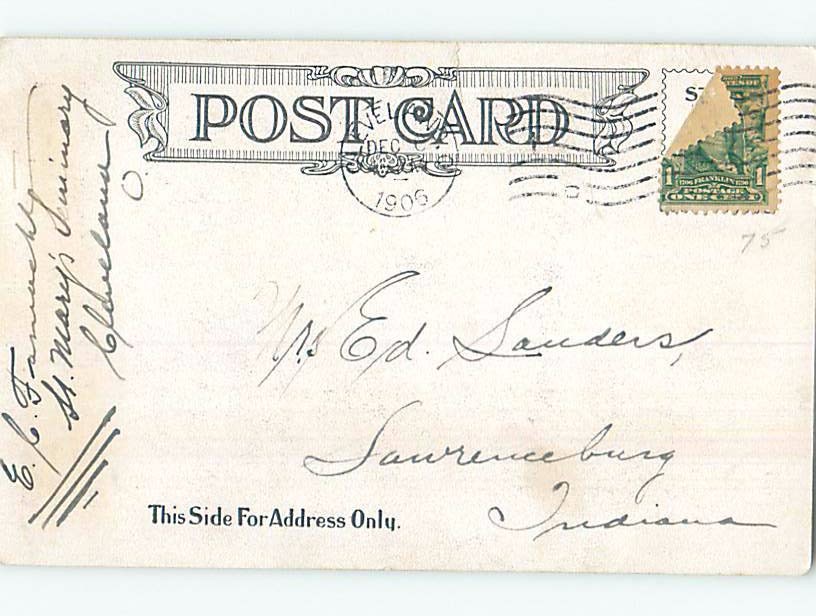 POST CARD
DEC
1906
S
1 1706 FRANKLIN 1790 1
POSTAGE
ONE CENT
75
E. C.
St. Mary's Seminary
Cleveland
O.
Mrs Ed. Sanders,
Lawrenceburg
Indiana
This Side For Address Only.